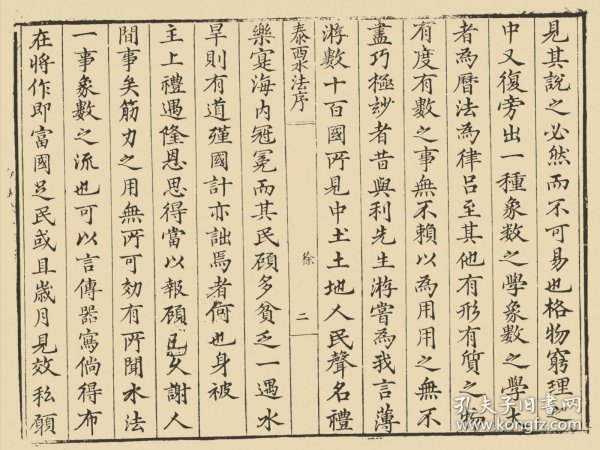 見其說之必然而不可易也格物窮理之
中又復旁出一種象數之學象數之學大
者為曆法為律呂至其他有形有質之物
有度有數之事無不賴以為用用之無不
盡巧極妙者昔與利先生游嘗為我言薄
游數十百國所見中土土地人民聲名禮
泰西水法序
徐
二
樂寔海內冠冕而其民顧多貧乏一遇水
旱則有道殣國計亦詘焉者何也身被
主上禮遇隆恩思得當以報顧已久謝人
間事矣筋力之用無所可効有所聞水法
一事象數之流也可以言傳器寫倘得布
在將作即富國足民或且歲月見效私願
孔夫子旧书网
www.kongfz.com